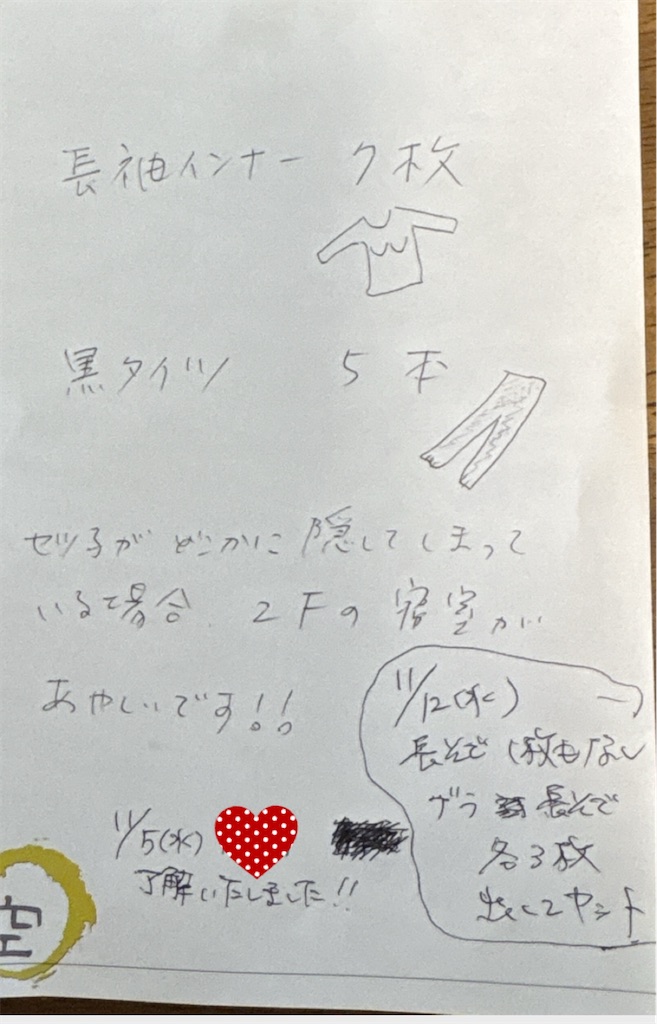 長袖インナー 7枚
黒タイツ 5本
セツ子がどこかに隠してしまって
いる場合、2Fの寝室が
あやしいです!!
11/5(水)
了解いたしました!!
11/12(水)
長そで1枚もなし
長そで
各3枚
空